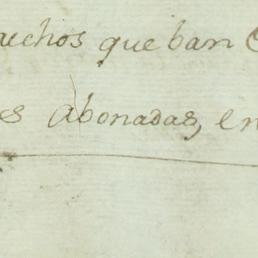 uchos que ban
es abonadas, en